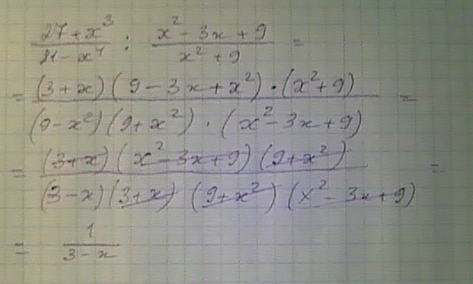 (27 + x³)/(81 - x⁴) : (x² - 3x + 9)/(x² + 9) =
= ((3 + x)(9 - 3x + x²) · (x² + 9))/((9 - x²)(9 + x²) · (x² - 3x + 9)) =
= ((3 + x)(x² - 3x + 9)(9 + x²))/((3 - x)(3 + x)(9 + x²)(x² - 3x + 9)) =
= 1/(3 - x)